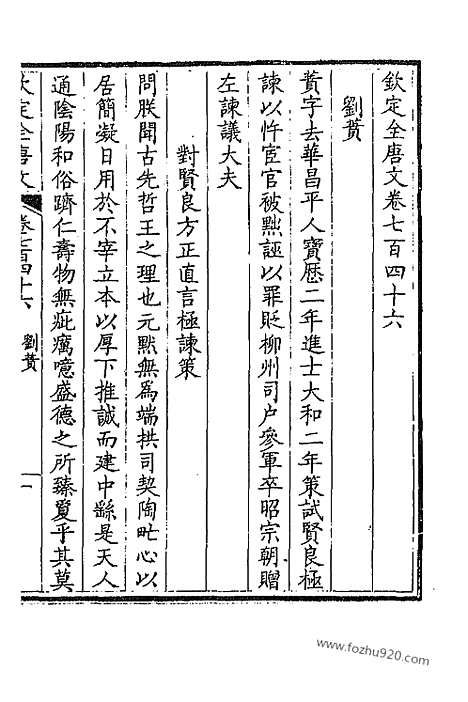 欽定全唐文卷七百四十六
劉蕡
蕡字去華昌平人寶歷二年進士大和二年策試賢良極
諫以忤宦官被黜誣以罪貶柳州司户參軍卒昭宗朝贈
左諫議大夫
對賢良方正直言極諫策
問朕聞古先哲王之理也元默無為端拱司契陶甿心以
居簡凝日用於不宰立本以厚下推誠而建中繇是天人
通陰陽和俗躋仁壽物無疵癘噫盛德之所臻敻乎其莫
欽定全唐文 卷七百四十六 劉蕡 一
www.fozhu920.com